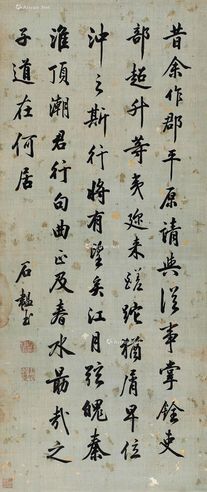 昔余作郡平原請與從事掌銓史
部超升等夷迩来蹉跎猶屑卑位
沖之斯行將有望矣江月弦魄秦
淮頂潮君行句曲正及春水勗哉之
子道在何居
石韞玉